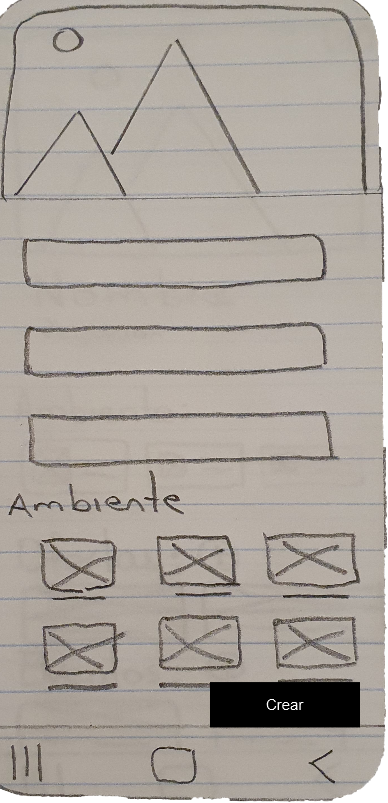 Ambiente
Crear